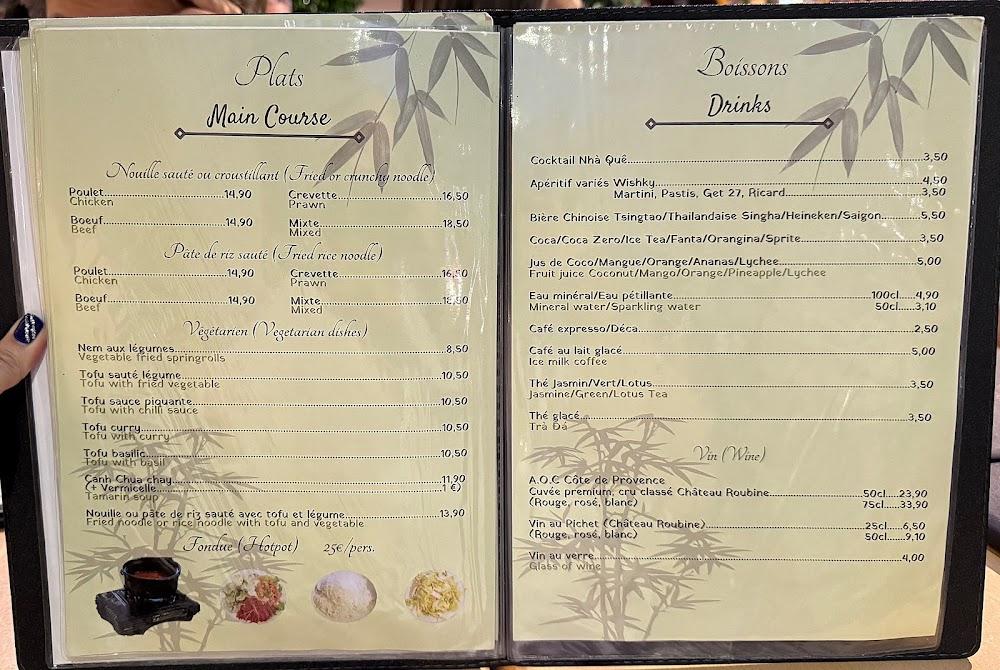 Plats
Main Course
Nouille sauté ou croustillant (Fried or crunchy noodle)
Poulet 14,90
Chicken
Crevette 16,50
Prawn
Boeuf 14,90
Beef
Mixte 18,50
Mixed
Pâte de riz sauté (Fried rice noodle)
Poulet 14,90
Chicken
Crevette 16,50
Prawn
Boeuf 14,90
Beef
Mixte 18,50
Mixed
Végétarien (Vegetarian dishes)
Nem aux légumes 8,50
Vegetable fried springrolls
Tofu sauté légume 10,50
Tofu with fried vegetable
Tofu sauce piquante 10,50
Tofu with chilli sauce
Tofu curry 10,50
Tofu with curry
Tofu basilic 10,50
Tofu with basil
Canh Chua chay 11,90
(+ Vermicelle 1 €)
Tamarin soup
Nouille ou pâte de riz sauté avec tofu et légume 13,90
Fried noodle or rice noodle with tofu and vegetable
Fondue (Hotpot) 25€/pers.
Boissons
Drinks
Cocktail Nhà Quê 3,50
Apéritif variés Wishky 4,50
Martini, Pastis, Get 27, Ricard 3,50
Bière Chinoise Tsingtao/Thailandaise Singha/Heineken/Saigon 5,50
Coca/Coca Zero/Ice Tea/Fanta/Orangina/Sprite 3,50
Jus de Coco/Mangue/Orange/Ananas/Lychee 5,00
Fruit juice Coconut/Mango/Orange/Pineapple/Lychee
Eau minéral/Eau pétillante 100cl 4,90
Mineral water/Sparkling water 50cl 3,10
Café expresso/Déca 2,50
Café au lait glacé 5,00
Ice milk coffee
Thé Jasmin/Vert/Lotus 3,50
Jasmine/Green/Lotus Tea
Thé glacé 3,50
Trà Đá
Vin (Wine)
A.O.C Côte de Provence
Cuvée premium, cru classé Château Roubine 50cl 23,90
(Rouge, rosé, blanc) 75cl 33,90
Vin au Pichet (Château Roubine) 25cl 6,50
(Rouge, rosé, blanc) 50cl 9,10
Vin au verre 4,00
Glass of wine